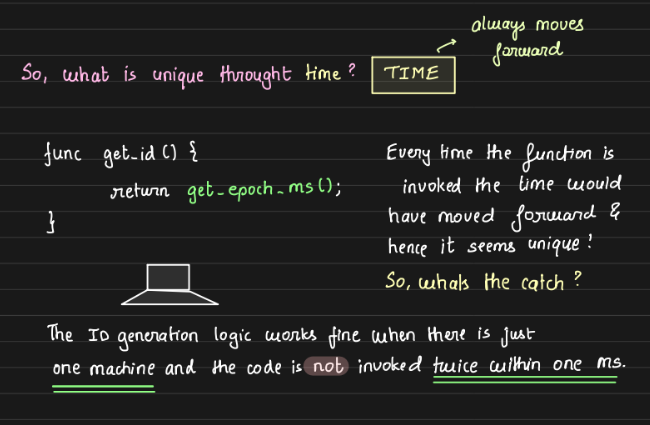 always moves
forward
So, what is unique throught time? TIME
func get_id () {
return get_epoch_ms();
}
Every time the function is
invoked the time would
have moved forward &
hence it seems unique!
So, whats the catch?
The ID generation logic works fine when there is just
one machine and the code is not invoked twice within one ms.